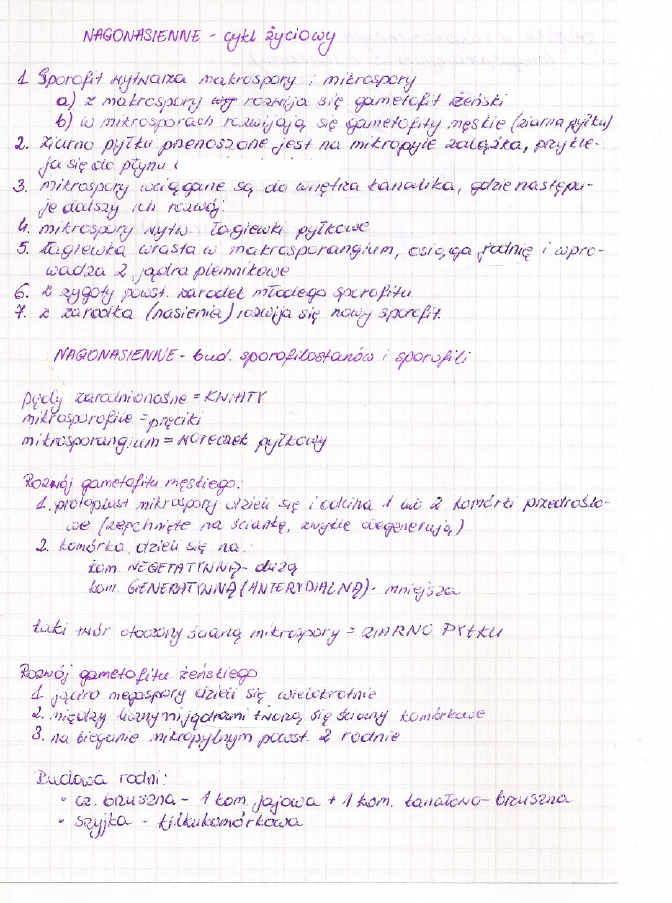 NAGONASIENNE - cykl życiowy
1. Sporofit wytwarza makrospory i mikrospory
a) z makrospory rozwija się gametofit żeński
b) w mikrosporach rozwijają się gametofity męskie (ziarna pyłku)
2. ziarno pyłku przenoszone jest na mikropyle zalążka, przykle-
ja się do płynu
3. mikrospory wciągane są do wnętrza kanalika, gdzie następu-
je dalszy ich rozwój
4. mikrospory wytw. łagiewki pyłkowe
5. łagiewka wrasta w makrosporangium, osiąga rodnię i wpro-
wadza 2 jądra plemnikowe
6. z zygoty powst. zarodek młodego sporofitu
7. z zarodka (nasienia) rozwija się nowy sporofit.
NAGONASIENNE - bud. sporofilostanów i sporofili
pędy zarodnionośne = KWIATY
mikrosporofile = pręciki
mikrosporangium = woreczek pyłkowy
Rozwój gametofitu męskiego:
1. protoplast mikrospory dzieli się i odcina 1 lub 2 komórki przedrośla-
we (zepchnięte na ściankę, zwykle degenerują)
2. komórka dzieli się na:
kom. WEGETATYWNĄ - dużą
kom. GENERATYWNĄ (ANTERYDIALNĄ) - mniejsza
taki twór otoczony ścianą mikrospory = ZIARNO PYŁKU
Rozwój gametofitu żeńskiego
1. jądro megaspory dzieli się wielokrotnie
2. między licznymi jądrami tworzą się ściany komórkowe
3. na biegunie mikropylnym powst. 2 rodnie
Budowa rodni:
• cz. brzuszna - 1 kom. jajowa + 1 kom. kanałowo-brzuszna
• szyjka - kilkukomórkowa